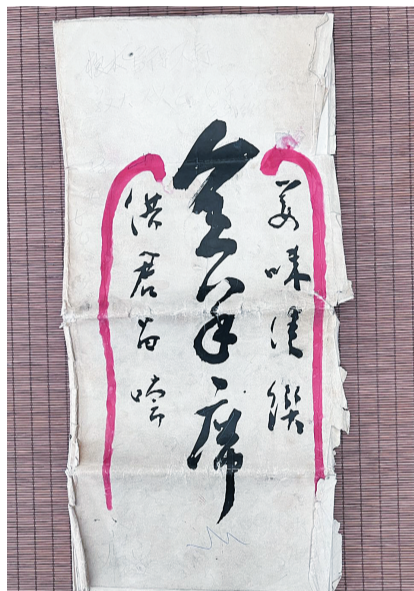 美味佳馔
全羊席
供君品嚐